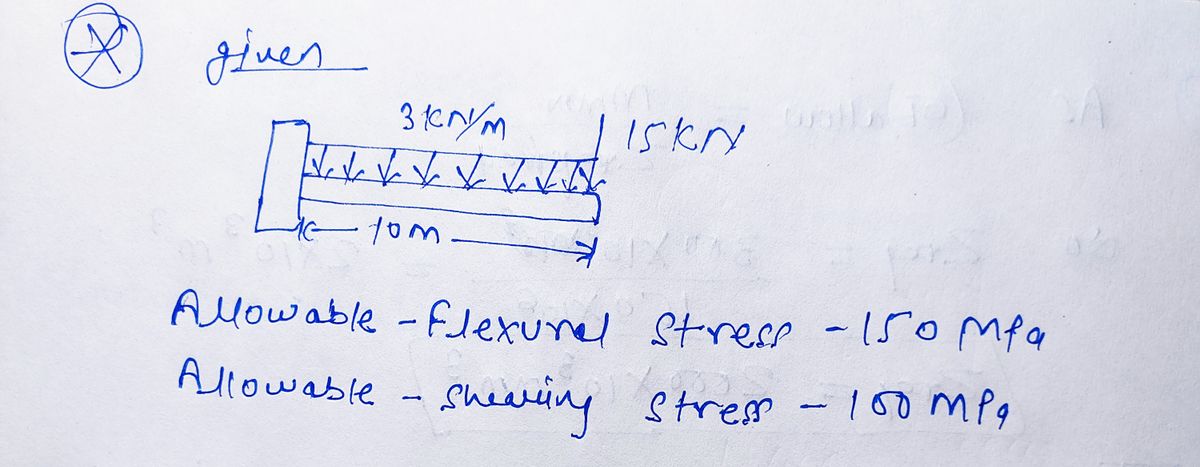 given
3 KN/m
15KN
10m
Allowable - flexural stress - 150 Mpa
Allowable - shearing stress - 100 MPa